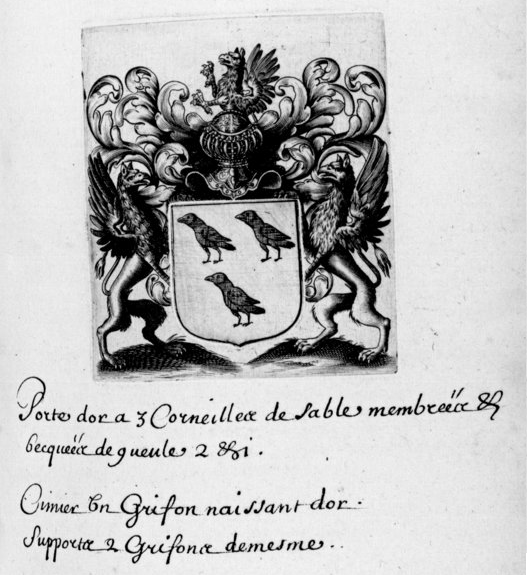 Porte dor a 3 Corneilles de sable membreës &
becqueës de gueule 2 & i.
Cimier Vn Grifon naissant dor.
Supports 2 Grifons demesme.